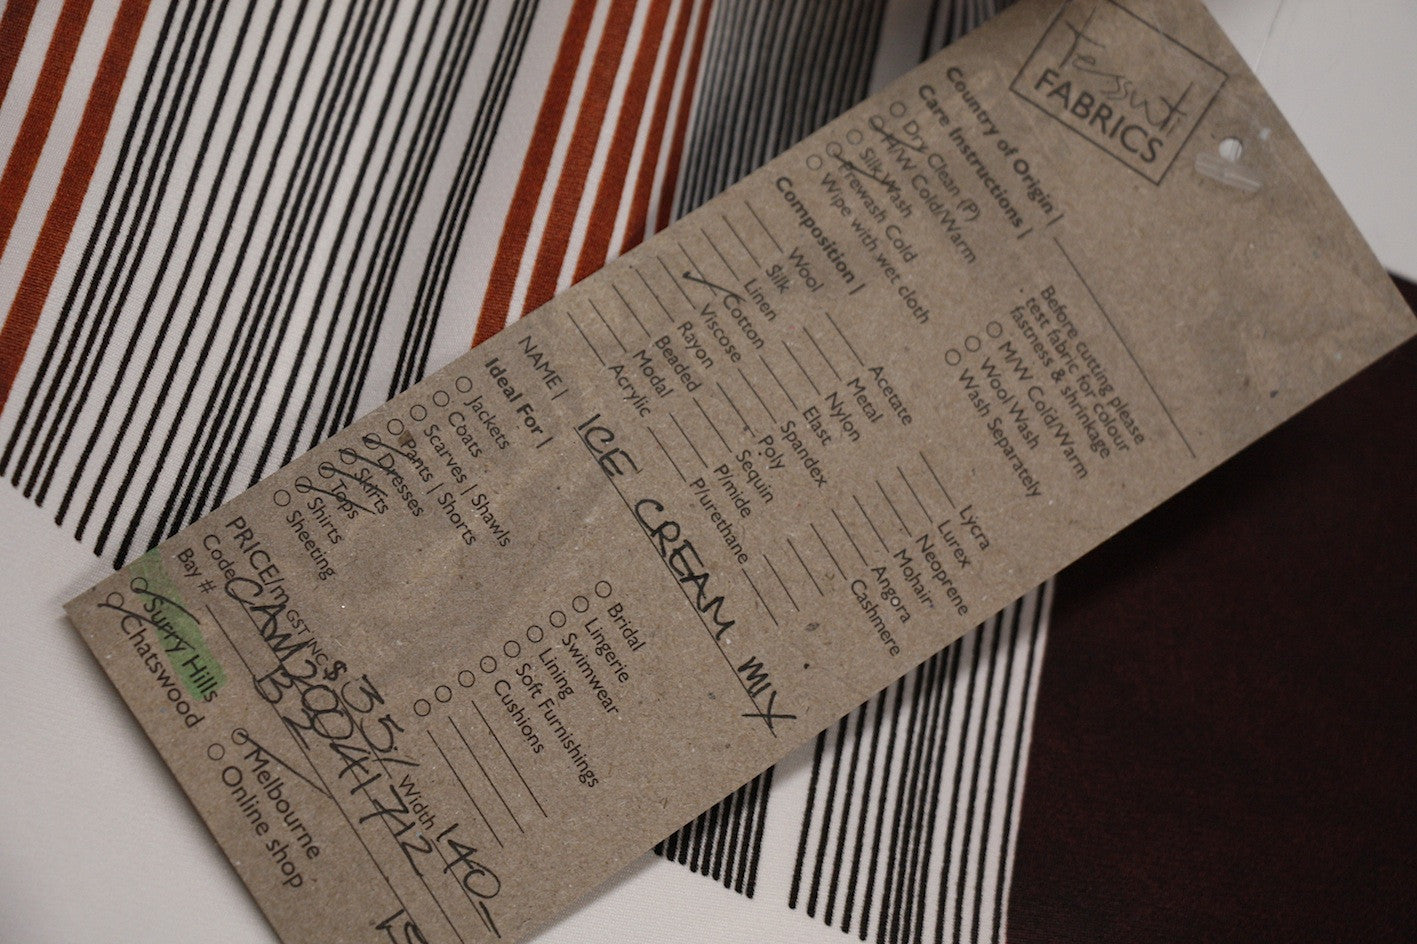 Tessuti
FABRICS
Country of Origin |
Care Instructions |
Dry Clean (P)
H/W Cold/Warm
Silk Wash
Prewash Cold
Wipe with wet cloth
Before cutting please
test fabric for colour
fastness & shrinkage
M/W Cold/Warm
Wool Wash
Wash Separately
Composition |
Wool
Silk
Linen
Cotton
Viscose
Rayon
Beaded
Modal
Acrylic
Acetate
Metal
Nylon
Elast
Spandex
Poly
Sequin
P/mide
P/urethane
Lycra
Lurex
Neoprene
Mohair
Angora
Cashmere
NAME | ICE CREAM MIX
Ideal For |
Jackets
Coats
Scarves | Shawls
Pants | Shorts
Dresses
Skirts
Tops
Shirts
Sheeting
Bridal
Lingerie
Swimwear
Lining
Soft Furnishings
Cushions
PRICE/m GST INC $35/ Width 140
Code CAM20041712
Bay #
Surry Hills
Chatswood
Melbourne
Online shop